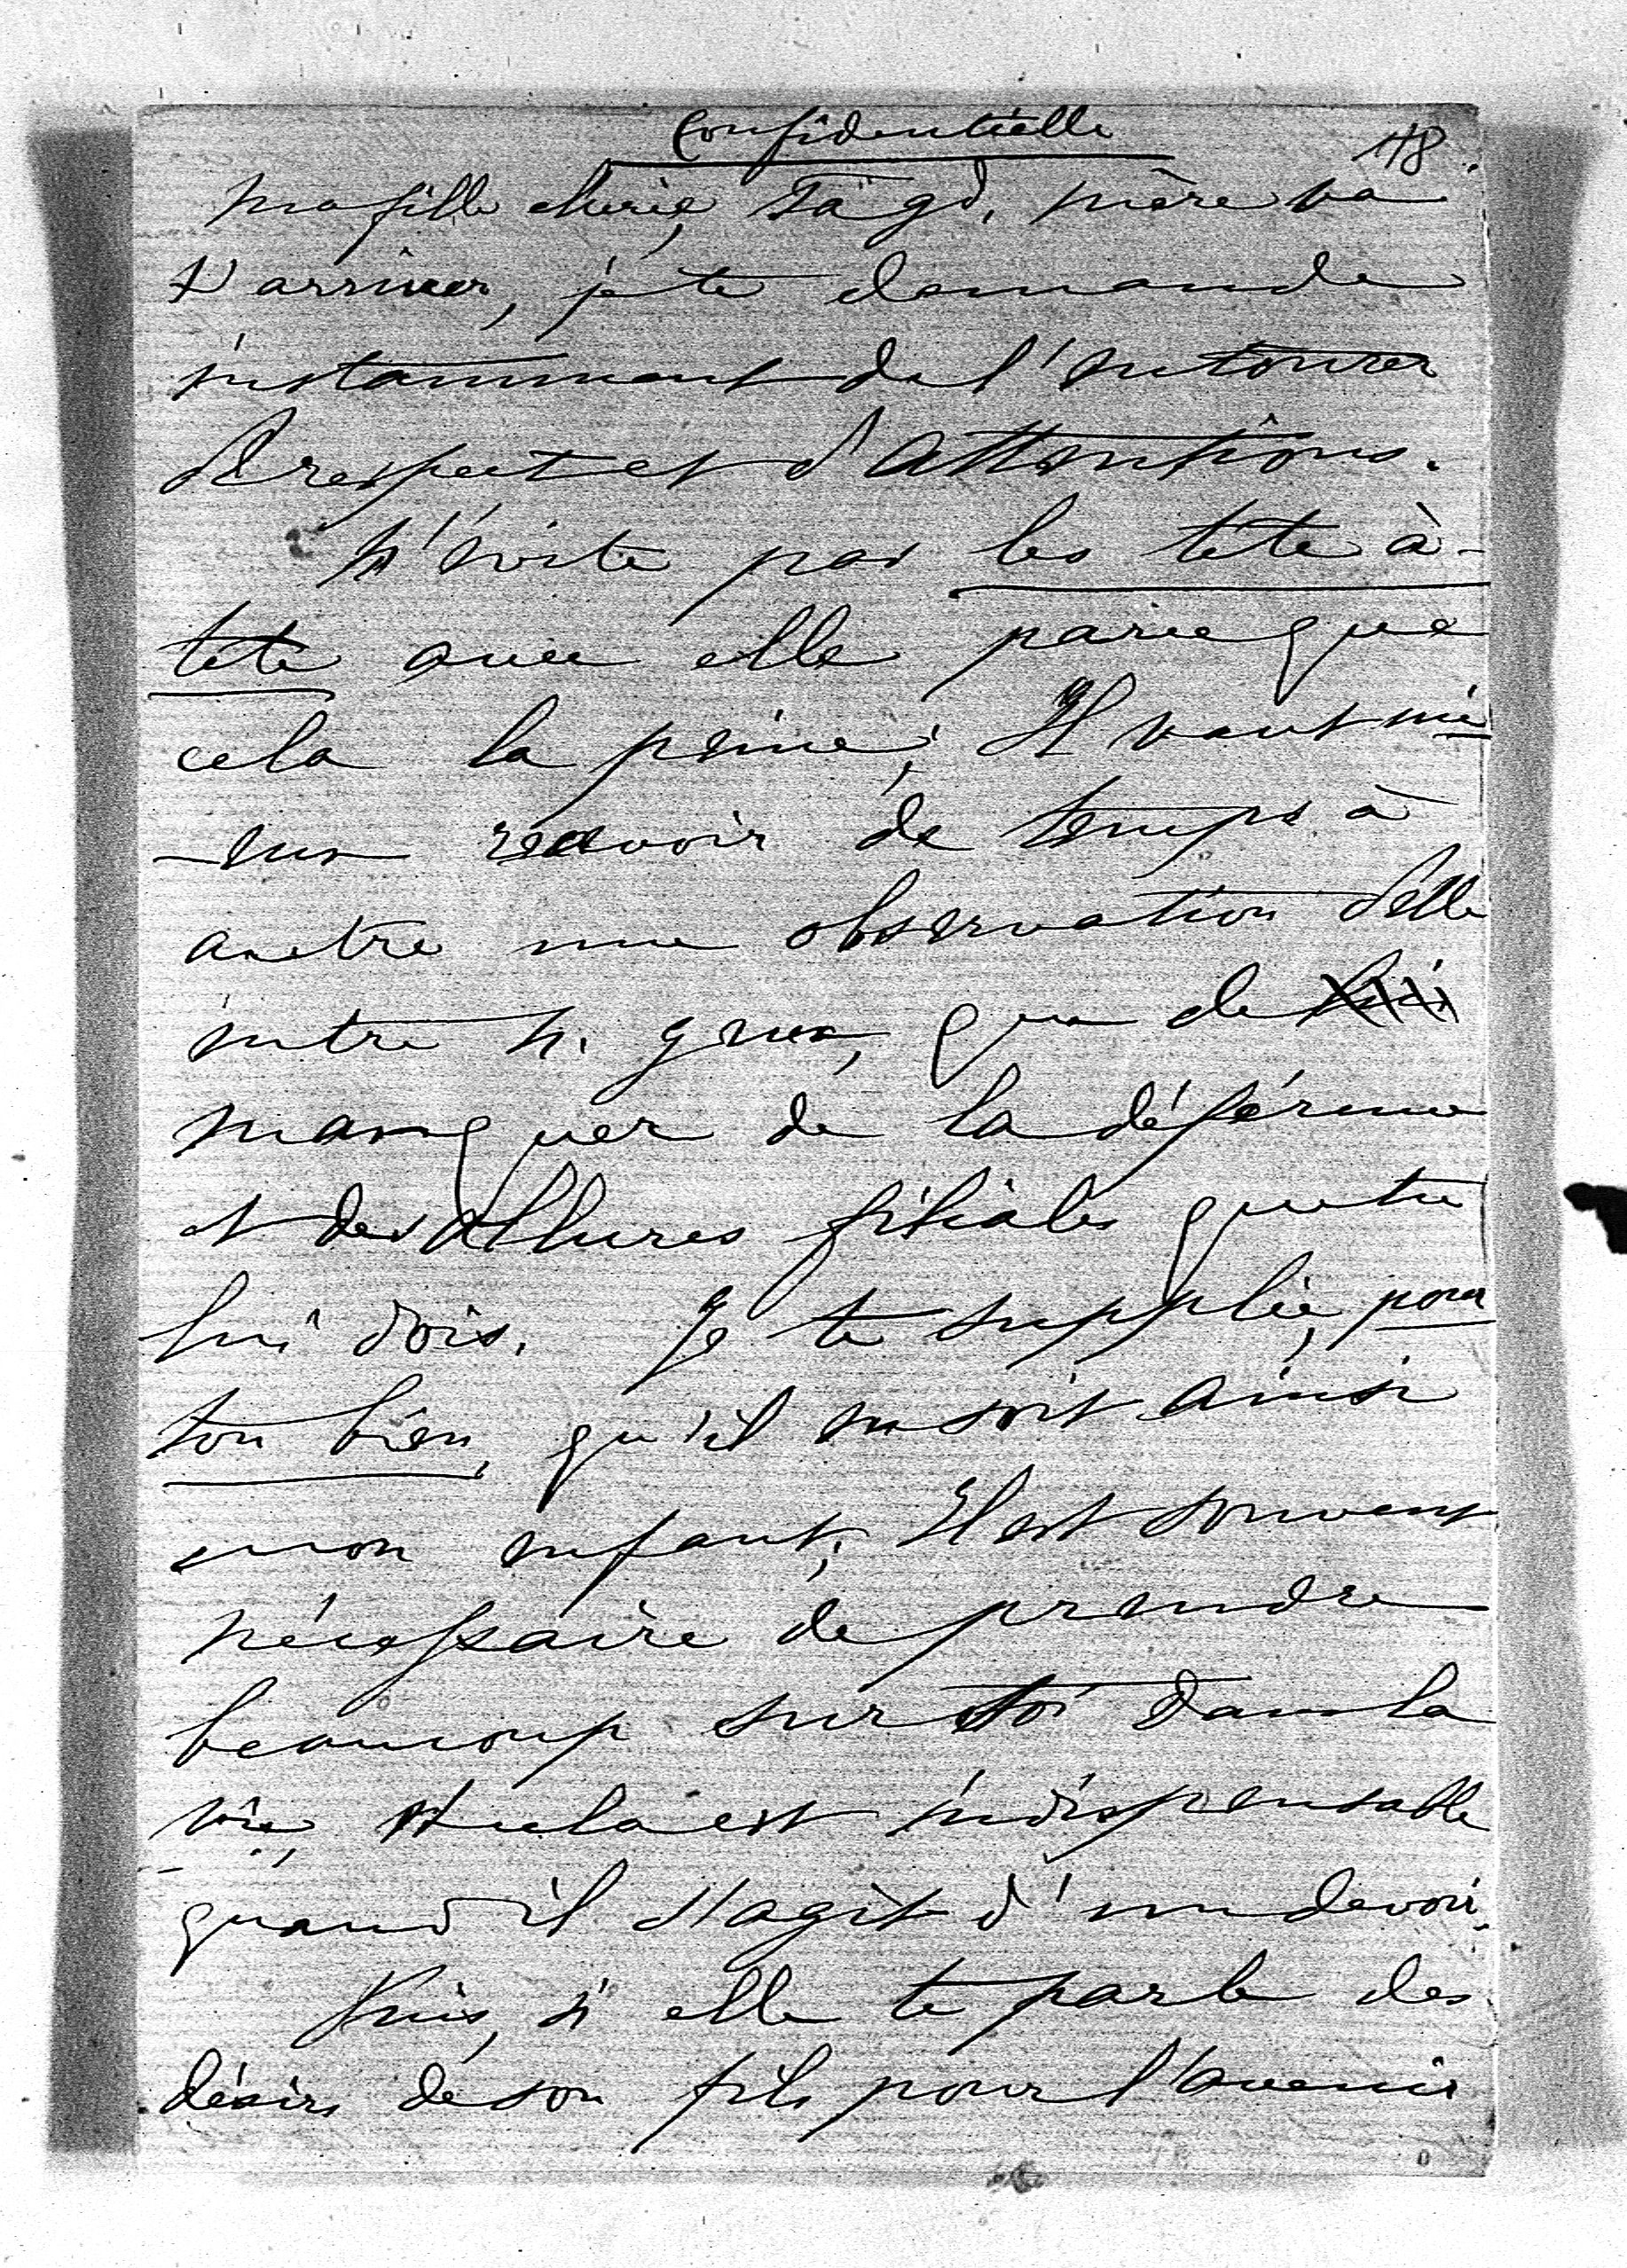 Confidentielle
118
Ma fille chérie, Ta gd. mère va
t'arriver, je te demande
instamment de l'entourer
de respect et d'attentions.
N'évite pas les tête à-
tête avec elle parce que
cela la peine; Il vaut mi
-eux recevoir de temps à
autre une observation d'elle
entre 4. yeux, que de lui
manquer de la déférence
et des allures filiales que tu
lui dois. Je te supplie, pour
ton bien, qu'il en soit ainsi
mon enfant; Il est souvent
nécessaire de prendre
beaucoup sur soi dans la
vie, et cela est indispensable
quand il s'agit d'un devoir.
Puis, si elle te parle des
désirs de son fils pour l'avenir